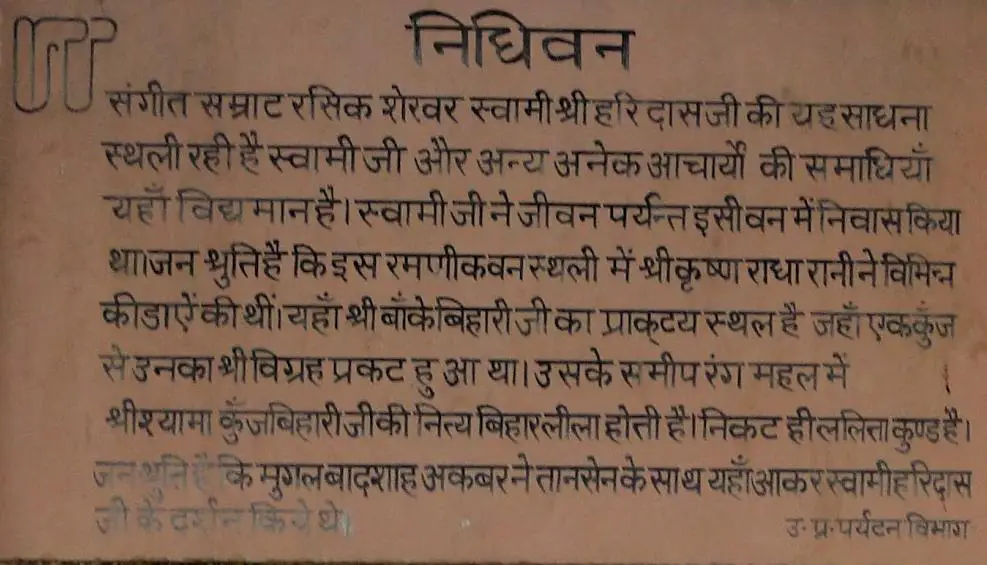 निधिवन
संगीत सम्राट रसिक शेरवर स्वामी श्री हरि दास जी की यह साधना
स्थली रही है स्वामी जी और अन्य अनेक आचार्यों की समाधियाँ
यहाँ विद्यमान है। स्वामी जी ने जीवन पर्यन्त इसी वन में निवास किया
था। जन श्रुति है कि इस रमणीक वन स्थली में श्री कृष्ण राधा रानी ने विभिन्न
कीडाऐं की थीं। यहाँ श्री बाँके बिहारी जी का प्राकृटय स्थल है जहाँ एक कुँज
से उनका श्री विग्रह प्रकट हु आ था। उसके समीप रंग महल में
श्री श्यामा कुँजबिहारी जी की नित्य बिहार लीला होती है। निकट ही ललिता कुण्ड है।
जन श्रुति है कि मुगल बादशाह अकबर ने तानसेन के साथ यहाँ आकर स्वामी हरिदास
जी के दर्शन किये थे।
उ॰ प्र॰ पर्यटन विभाग